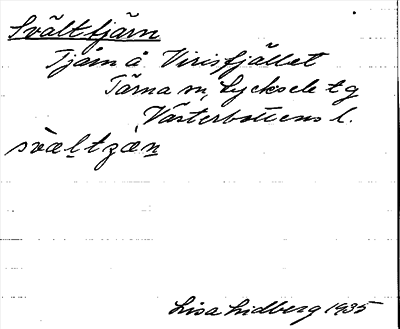 Svälttjärn
Tjärn å Virisfjället
Tärna sn, Lycksele tg
Västerbottens l.
svæltzæn
Lisa Lidberg 1935